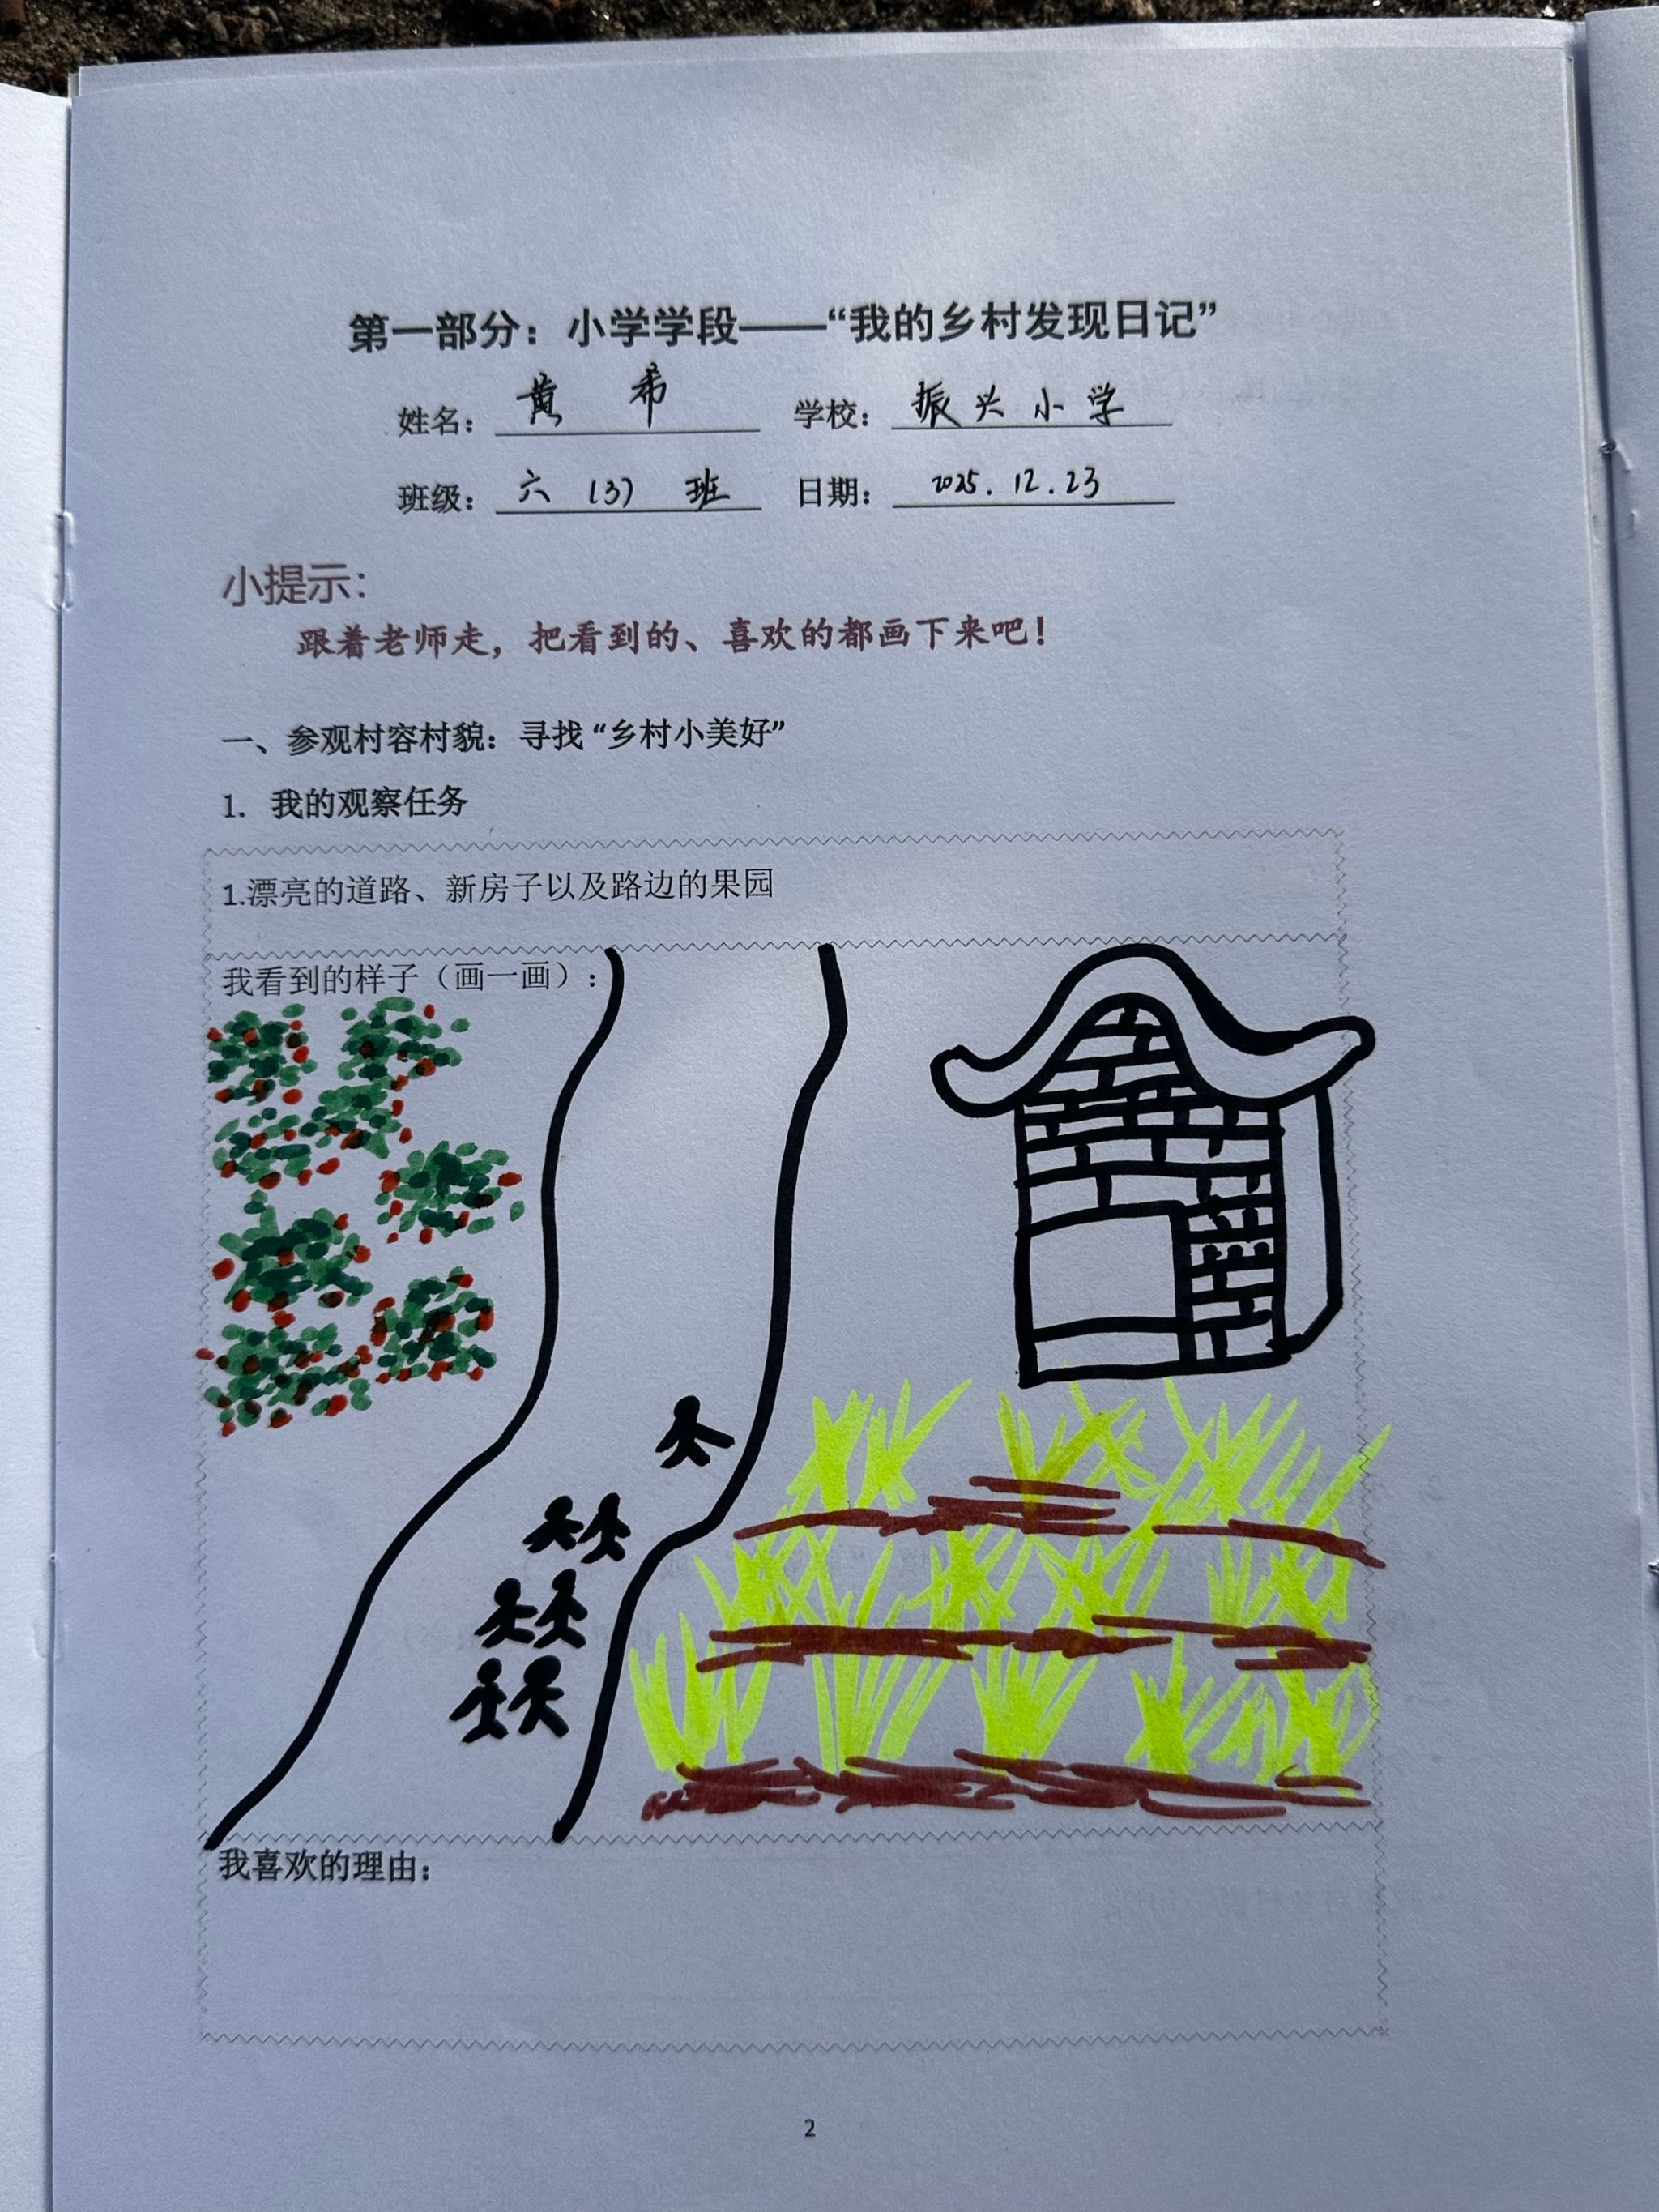 第一部分：小学学段——“我的乡村发现日记”
姓名： 黄 希 学校： 振兴小学
班级： 六 (3) 班 日期： 2025.12.23
小提示：
跟着老师走，把看到的、喜欢的都画下来吧！
一、参观村容村貌：寻找“乡村小美好”
1. 我的观察任务
1.漂亮的道路、新房子以及路边的果园
我看到的样子（画一画）：
我喜欢的理由：
2